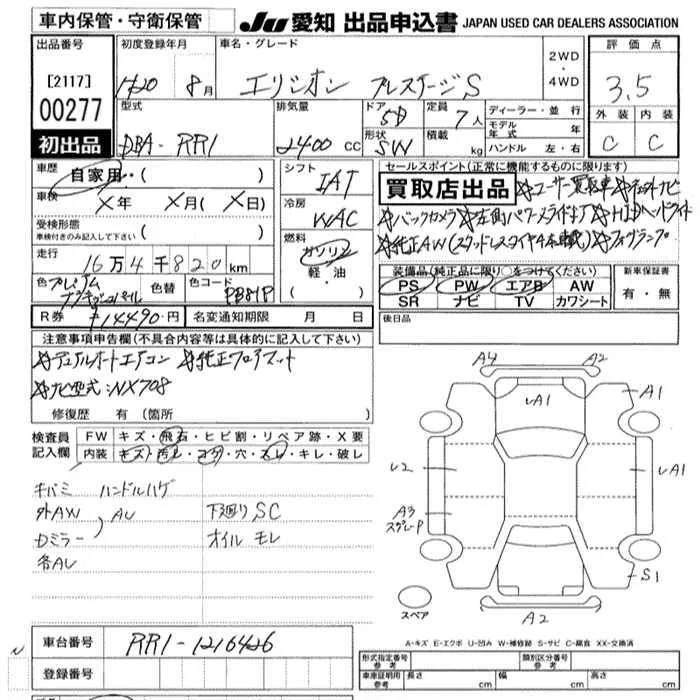 車内保管・守衛保管
JU 愛知 出品申込書 JAPAN USED CAR DEALERS ASSOCIATION
出品番号 初度登録年月 車名・グレード 2WD・4WD 評価点
[2117] H20 8月 エリシオン プレステージ S 3.5
00277 型式 排気量 ドア 定員 ディーラー・並行 外装 内装
初出品 DBA-RR1 2400 cc 5D 7人 モデル年式 年 C C
形状 SW 積載 kg ハンドル 左・右
車歴 自家用・・( ) シフト IAT セールスポイント(正常に機能するものに限ります)
車検 X年 X月( X )日 冷房 WAC 買取店出品 ☆ユーザー買取車
受検形態 ☆バックカメラ ☆左側パワースライドドア ☆HIDヘッドライト
車検付きのみ記入して下さい( ) 燃料 ガソリン ☆純正AW(スタッドレスタイヤ4本載) ☆フォグランプ
走行 16万4千820km 軽・油 ( ) 装備品(純正品に限り〇をつけてください) 新車保証書
色 プレミアム 色替 色コード PB81P PS PW エアB AW 有・無
SR ナビ TV カワシート
R券 ¥14490-円 名変通知期限 月 日 後日品
注意事項申告欄(不具合内容等は具体的に記入して下さい)
☆デュアルオートエアコン ☆純正フロアマット
☆ナビ型式:NX708
修復歴 有(箇所 )
検査員記入欄 FW キズ・飛石・ヒビ割・リペア跡・X要
内装 キズ・汚レ・コゲ・穴・スレ・キレ・破レ
キバミ ハンドルハゲ
外AW AU 下廻りSC
Dミラー オイルモレ
各AU
A4 A2
UA1 A1
U2 UA1
A3
スプレーP
S1
スペア A2
A-キズ E-エクボ U-凹み W-補修跡 S-サビ C-腐食 XX-交換済
車台番号 RR1-1216426 形式指定番号 参考 類別区分番号 参考
登録番号 車庫証明用 参考 長さ cm 幅 cm 高さ cm